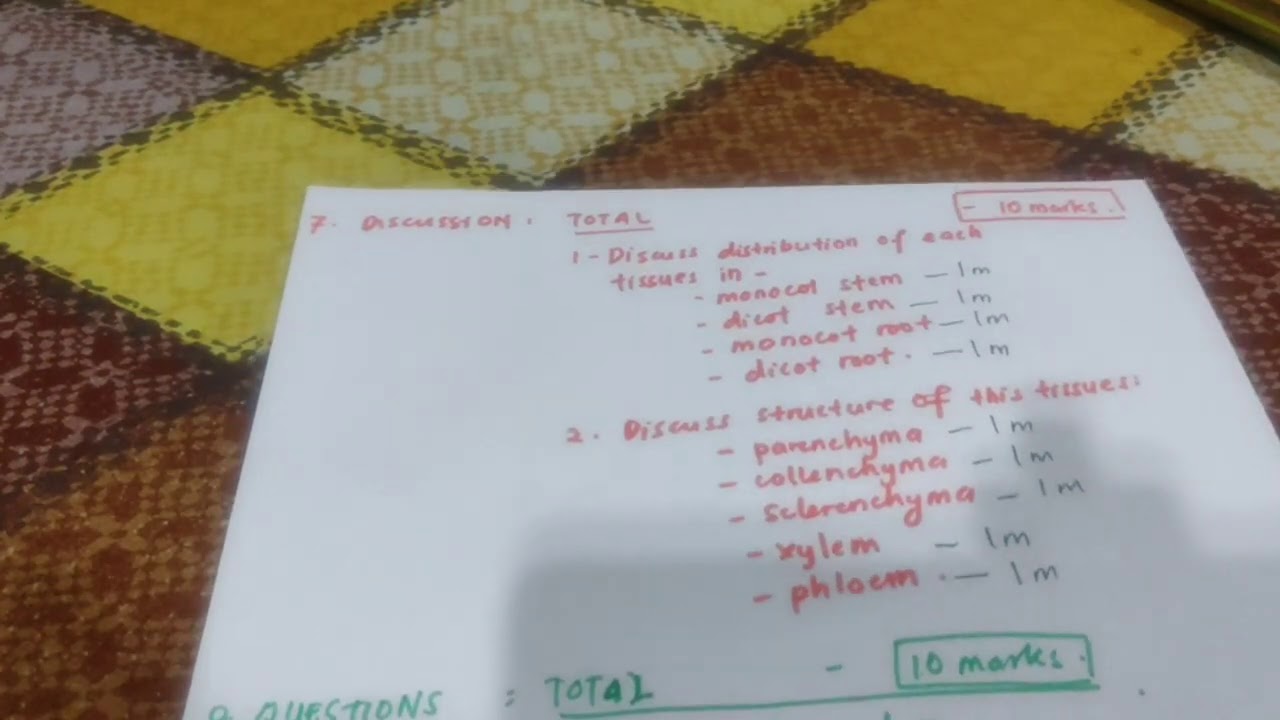 7. DISCUSSION : TOTAL - 10 marks.
1 - Discuss distribution of each
tissues in -
- monocot stem - 1m
- dicot stem - 1m
- monocot root - 1m
- dicot root. - 1m
2. Discuss structure of this tissues:
- parenchyma - 1m
- collenchyma - 1m
- sclerenchyma - 1m
- xylem - 1m
- phloem. - 1m
QUESTIONS : TOTAL - 10 marks.